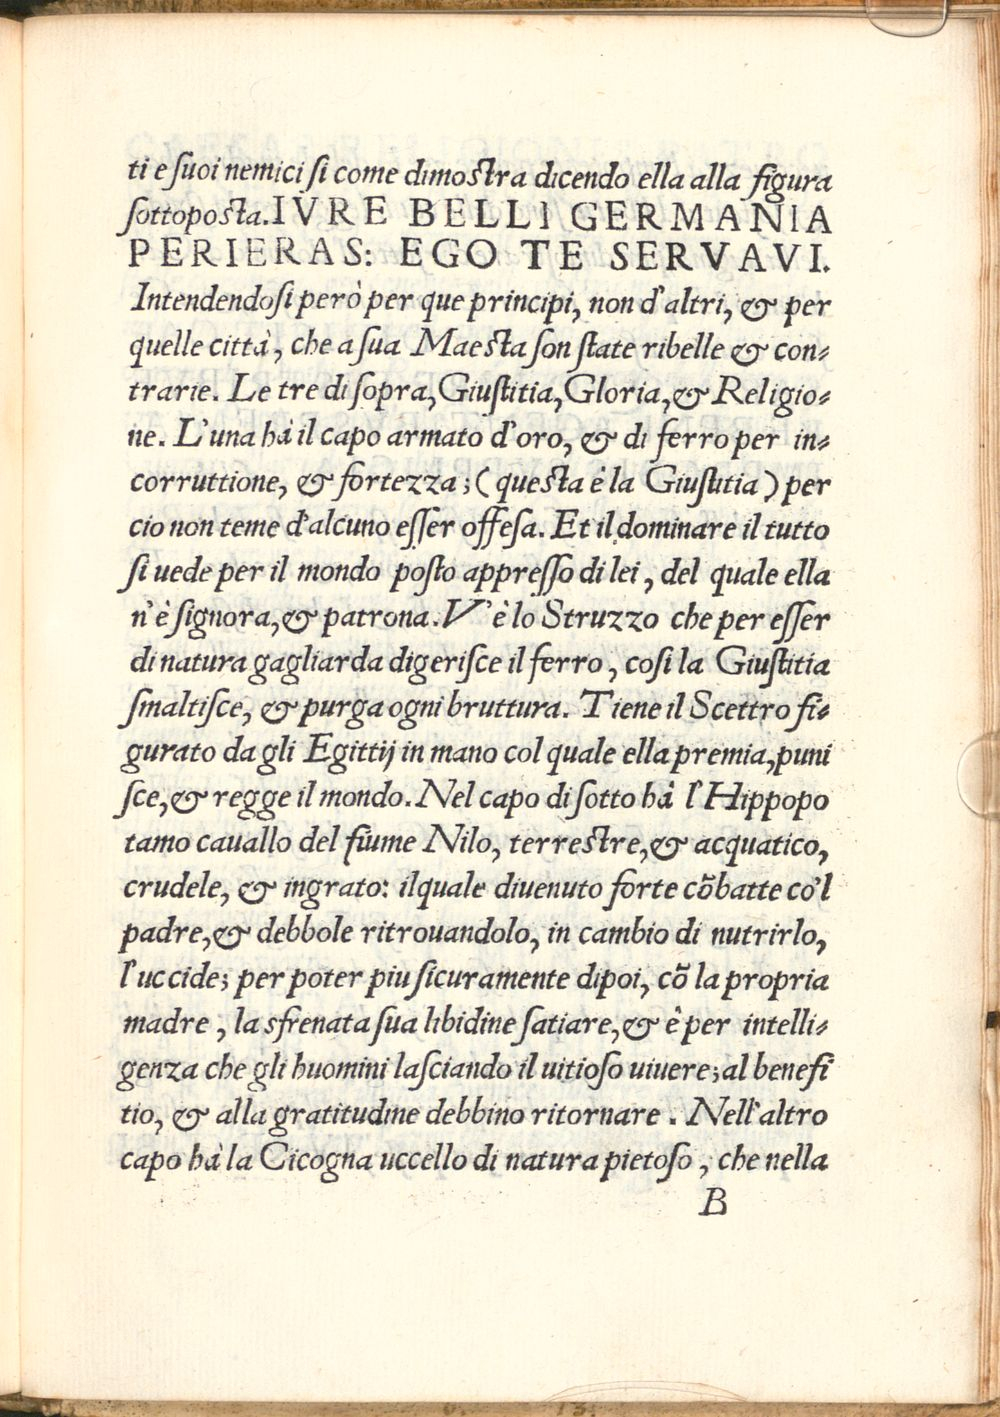 ti e ſuoi nemici ſi come dimoſtra dicendo ella alla figura
ſottopoſta. IVRE BELLI GERMANIA
PERIERAS: EGO TE SERVAVI.
Intendendoſi però per que principi, non d'altri, & per
quelle città, che a ſua Maeſta ſon ſtate ribelle & con-
trarie. Le tre di ſopra, Giuſtitia, Gloria, & Religio-
ne. L'una hà il capo armato d'oro, & di ferro per in-
corruttione, & fortezza; (queſta è la Giuſtitia) per
cio non teme d'alcuno eſſer offeſa. Et il dominare il tutto
ſi uede per il mondo poſto appreſſo di lei, del quale ella
n'è ſignora, & patrona. V'è lo Struzzo che per eſſer
di natura gagliarda digeriſce il ferro, coſi la Giuſtitia
ſmaltiſce, & purga ogni bruttura. Tiene il Scettro fi-
gurato da gli Egittij in mano col quale ella premia, puni
ſce, & regge il mondo. Nel capo di ſotto hà l'Hippopo
tamo cauallo del fiume Nilo, terreſtre, & acquatico,
crudele, & ingrato: ilquale diuenuto forte cõbatte co'l
padre, & debbole ritrouandolo, in cambio di nutrirlo,
l'uccide; per poter piu ſicuramente dipoi, cõ la propria
madre, la sfrenata ſua libidine ſatiare, & è per intelli-
genza che gli huomini laſciando il uitioſo uiuere; al benefi
tio, & alla gratitudine debbino ritornare. Nell'altro
capo hà la Cicogna uccello di natura pietoſo, che nella
B